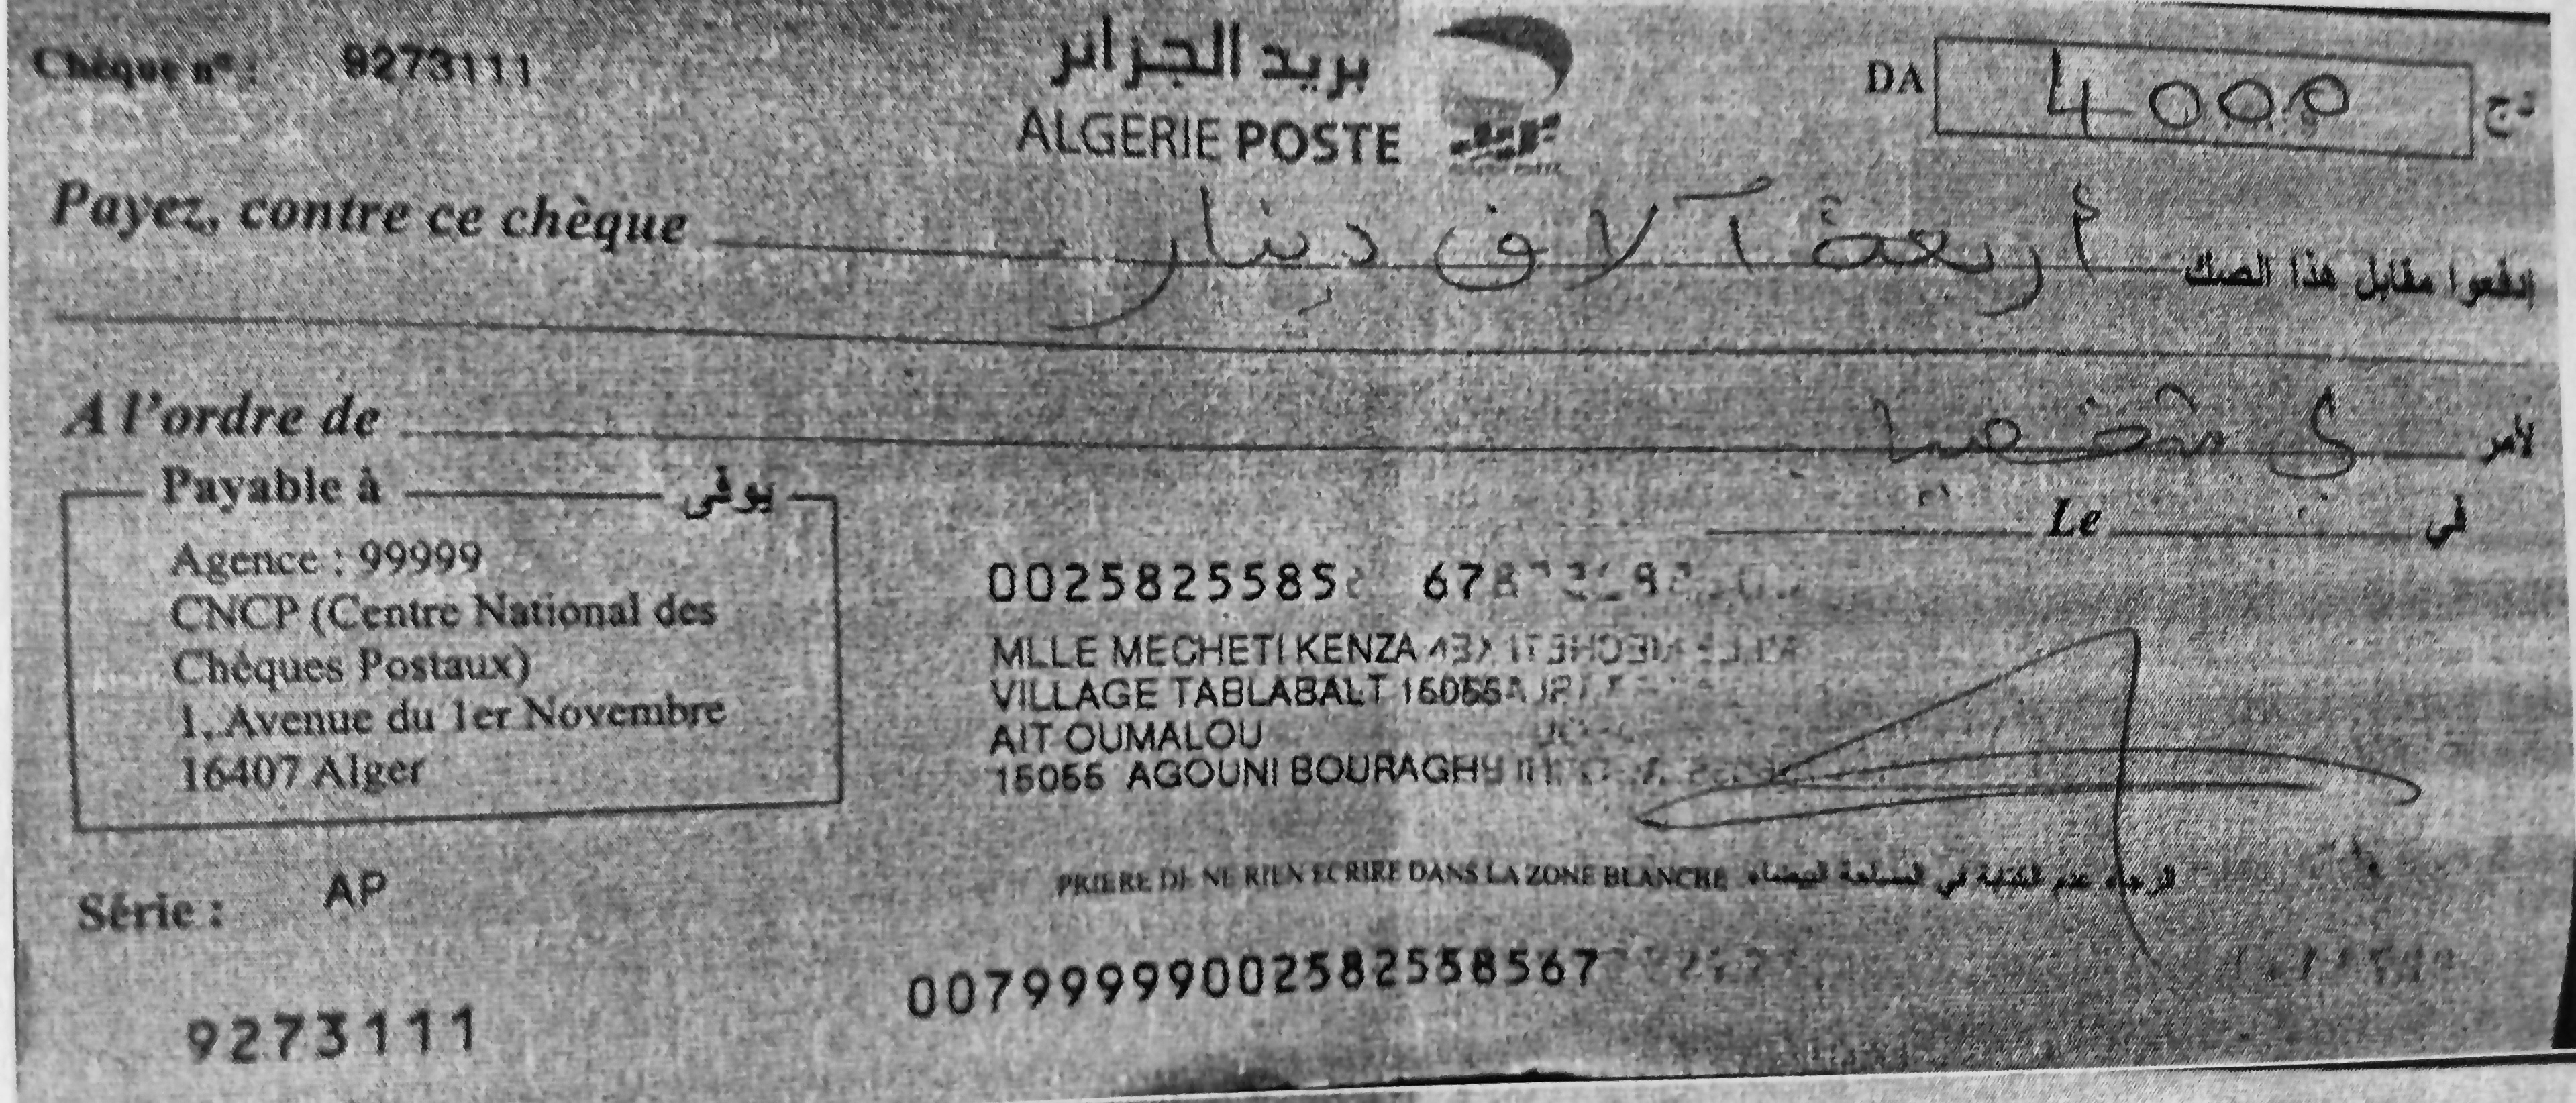 Chèque n° : 9273111
بريد الجزائر
ALGERIE POSTE
DA 4000 دج
Payez, contre ce chèque أربعة آلاف دينار إدفعوا مقابل هذا الصك
A l'ordre de لي شخصيا لأمر
Payable à يوفى
Le في
Agence : 99999
CNCP (Centre National des
Chéques Postaux)
1, Avenue du 1er Novembre
16407 Alger
0025825585 67
MLLE MECHETI KENZA
VILLAGE TABLABALT 15055
AIT OUMALOU
15055 AGOUNI BOURAGH
PRIERE DE NE RIEN ECRIRE DANS LA ZONE BLANCHE الرجاء عدم الكتابة في المساحة البيضاء
Série : AP
9273111
00799999002582558567